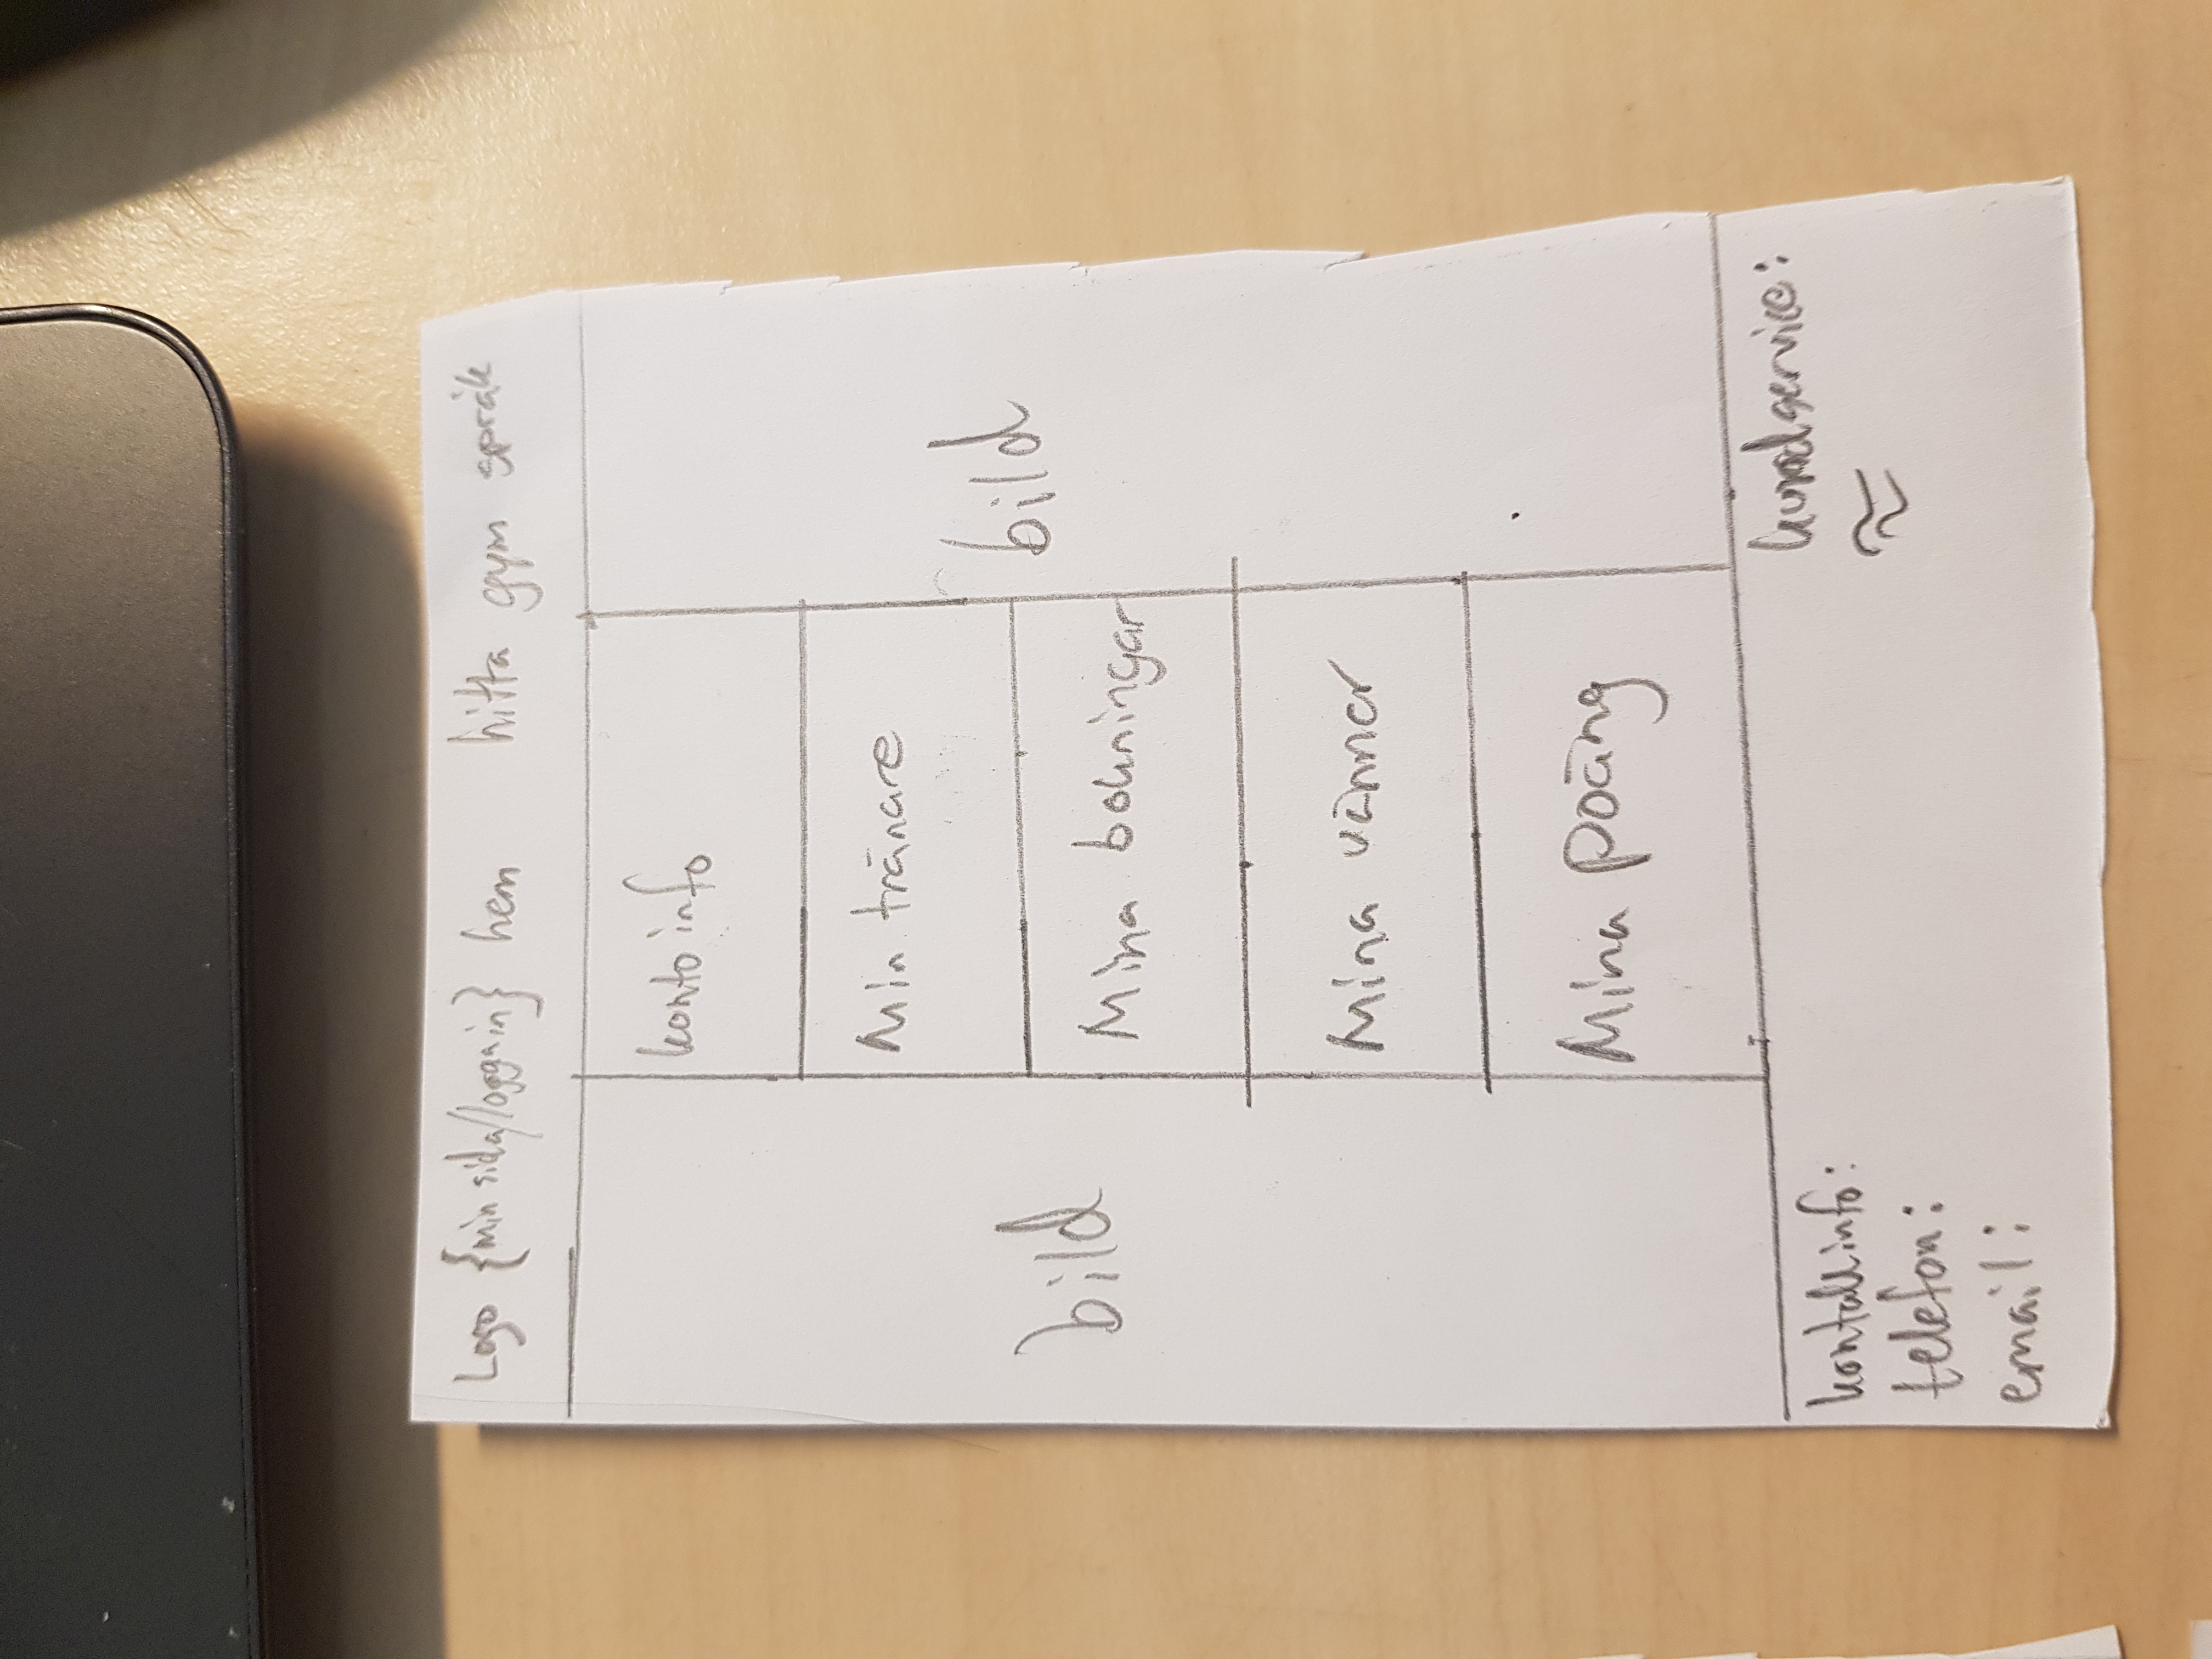 Logo {min sida/loggain} hem hitta gym språk
bild
konto info
Min tränare
Mina bokningar
Mina vänner
Mina poäng
bild
kontaktinfo:
telefon:
email:
kundservice: